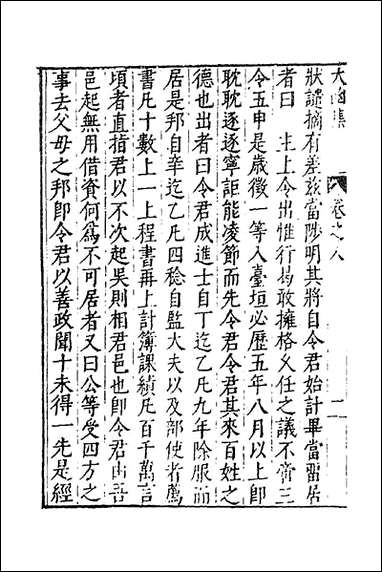 大函集
卷之八
二
狀譴摘有差兹當陟明其將自令君始計畢當留居
者曰 主上令出惟行曷敢擁格久任之議不啻三
令五申是歲徵一等入臺垣必歷五年八月以上即
耽耽逐逐寧詎能凌節而先令君令君其來百姓之
德也出者曰令君成進士自丁迄乙凡九年除服而
居是邦自辛迄乙凡四稔自監大夫以及部使者薦
書凡十數上一上程書再上計簿課績凡百千萬言
頃者直指君以不次起吳則相君邑也即令君由吾
邑起無用借資何爲不可居者又曰公等受四方之
事去父母之邦即令君以善政聞十未得一先是經